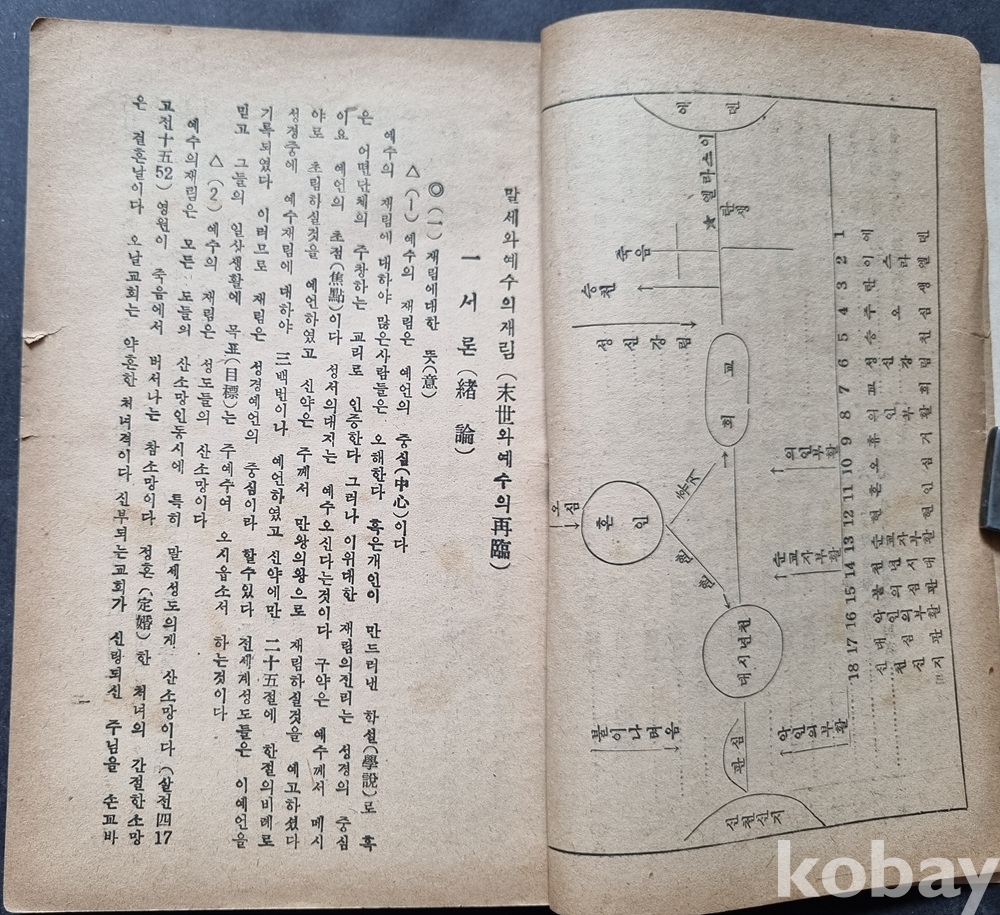 말세와예수의재림(末世와예수의再臨)
一 서 론(緖 論)
◎(一) 재림에대한 뜻(意)
△(1) 예수의 재림은 예언의 중심(中心)이다
예수의 재림에 대하야 많은사람들은 오해한다 혹은개인이 만드러낸 학설(學說)로 혹
은 어떤단체의 주창하는 교리로 인증한다 그러나 이위대한 재림의진리는 성경의 중심
이요 예언의 초점(焦點)이다 성서의대지는 예수오신다는것이다 구약은 예수께서 메시
야로 초림하실것을 예언하였고 신약은 주께서 만왕의왕으로 재림하실것을 예고하셨다
성경중에 예수재림에 대하야 三백번이나 예언하였고 신약에만 二十五절에 한절의비례로
기록되였다 이러므로 재림은 성경예언의 중심이라 할수있다 전세계성도들은 이예언을
믿고 그들의 일상생활에 목표(目標)는 주예수여 오시옵소서 하는것이다
△(2) 예수의 재림은 성도들의 산소망이다
예수의재림은 모든 도들의 산소망인동시에 특히 말세성도의게 산소망이다(살전四17
고전十五52) 영원이 죽음에서 버서나는 참소망이다 정혼(定婚)한 처녀의 간절한소망
은 결혼날이다 오날교회는 약혼한 처녀격이다 신부되는교회가 신랑되신 주님을 손꼬바
一
에덴
이스라엘
★탄생
죽음
승천
성신강림
교회
의인부활
오심
혼인
휴거
환란
순교자부활
천년시대
불이나려옴
악인의부활
심판
신천신지
1 2 3 4 5 6 7 8 9 10 11 12 13 14 15 16 17 18
kobay